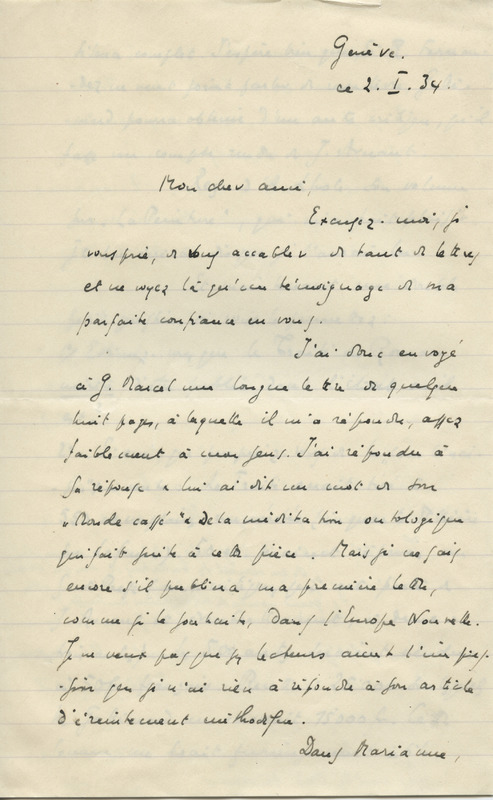 Genève.
ce 2. I. 34.
Mon cher ami,
Excusez-moi, je
vous prie, de vous accabler de tant de lettres
et ne voyez là qu'un témoignage de ma
parfaite confiance en vous.
J'ai donc envoyé
à G. Marcel une longue lettre de quelque
huit pages, à laquelle il m'a répondu, assez
faiblement à mon sens. J'ai répondu à
sa réponse & lui ai dit un mot de son
"Monde cassé" & de la méditation ontologique
qui fait suite à cette pièce. Mais je ne sais
encore s'il publiera ma première lettre,
comme je le souhaite, dans l'Europe Nouvelle.
Je ne veux pas que ses lecteurs aient l'impres-
sion que je n'ai rien à répondre à son article
d'éreintement méthodique.
Dans Marianne,